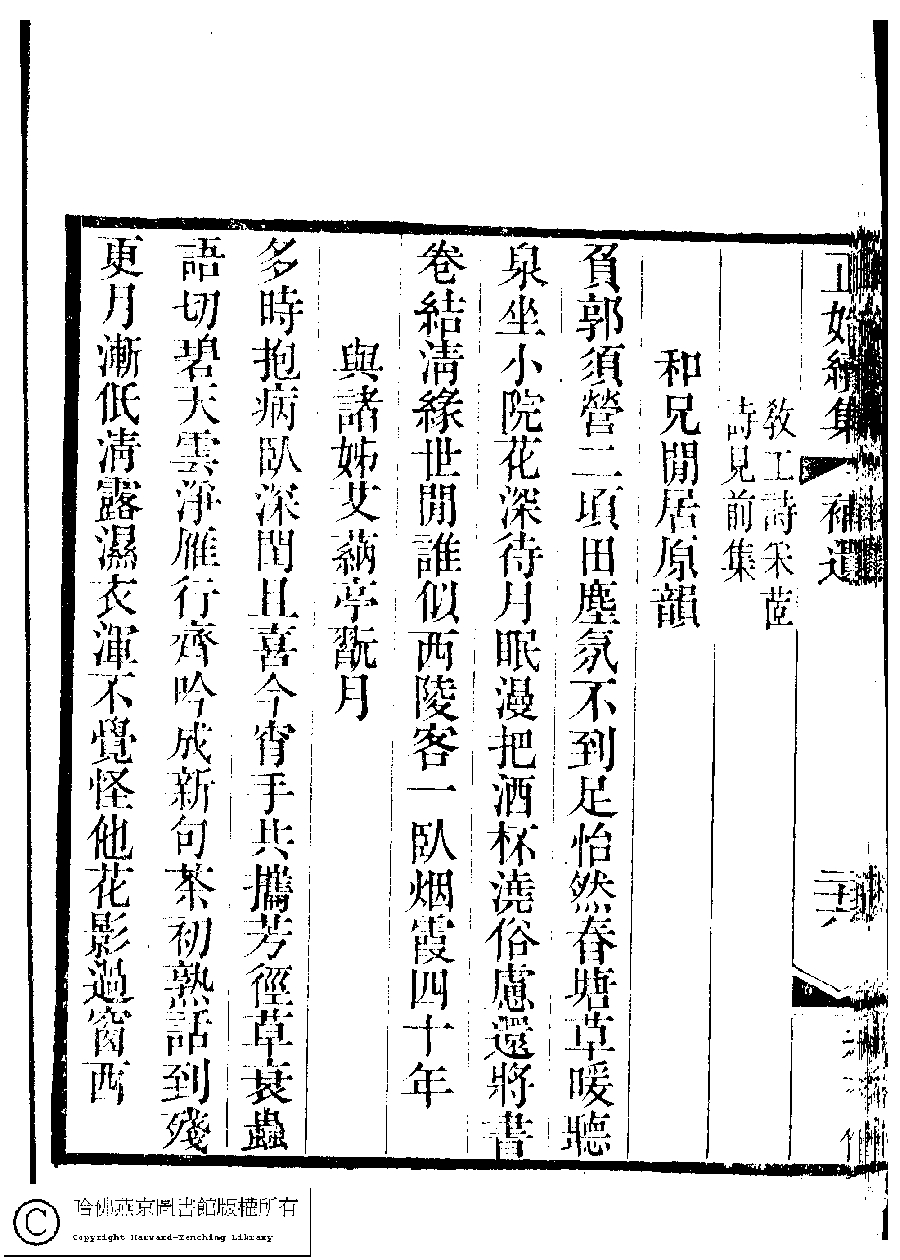 正始續集 補遺 二十六
教工詩采茝
詩見前集
和兄閒居原韻
負郭須營二頃田塵氛不到足怡然春塘草暖聽
泉坐小院花深待月眠漫把酒杯澆俗慮還將書
卷結淸緣世閒誰似西陵客一臥烟霞四十年
與諸姊艾蒳亭翫月
多時抱病臥深閨且喜今宵手共攜芳徑草衰蟲
語切碧天雲淨雁行齊吟成新句茶初熟話到殘
更月漸低淸露濕衣渾不覺怪他花影過窗西
哈佛燕京圖書館版權所有
Copyright Harvard-Yenching Library